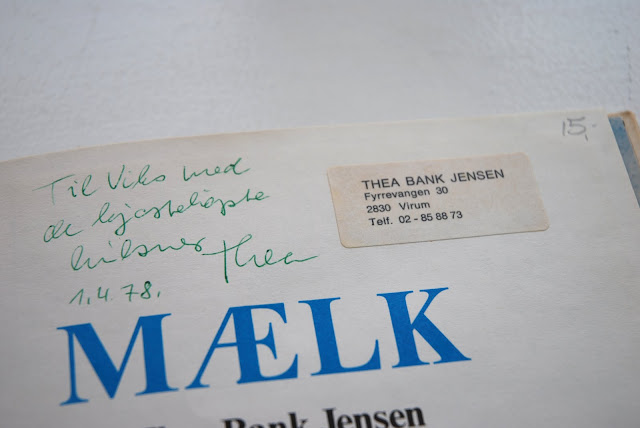 Til Viks med
de hjerteligste
hilsner Thea
1.4.78.
15,-
THEA BANK JENSEN
Fyrrevangen 30
2830 Virum
Telf. 02 - 85 88 73
MÆLK
Bank Jensen